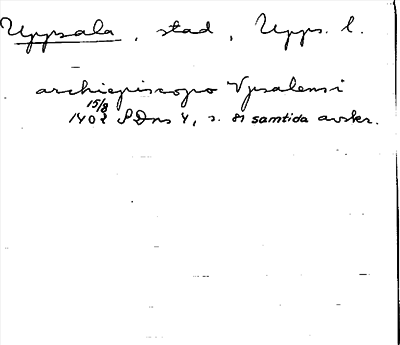 Uppsala, stad, Upps. l.
archiepiscopo Vpsalensi
15/8
1402 SDns 4, s. 81 samtida avskr.